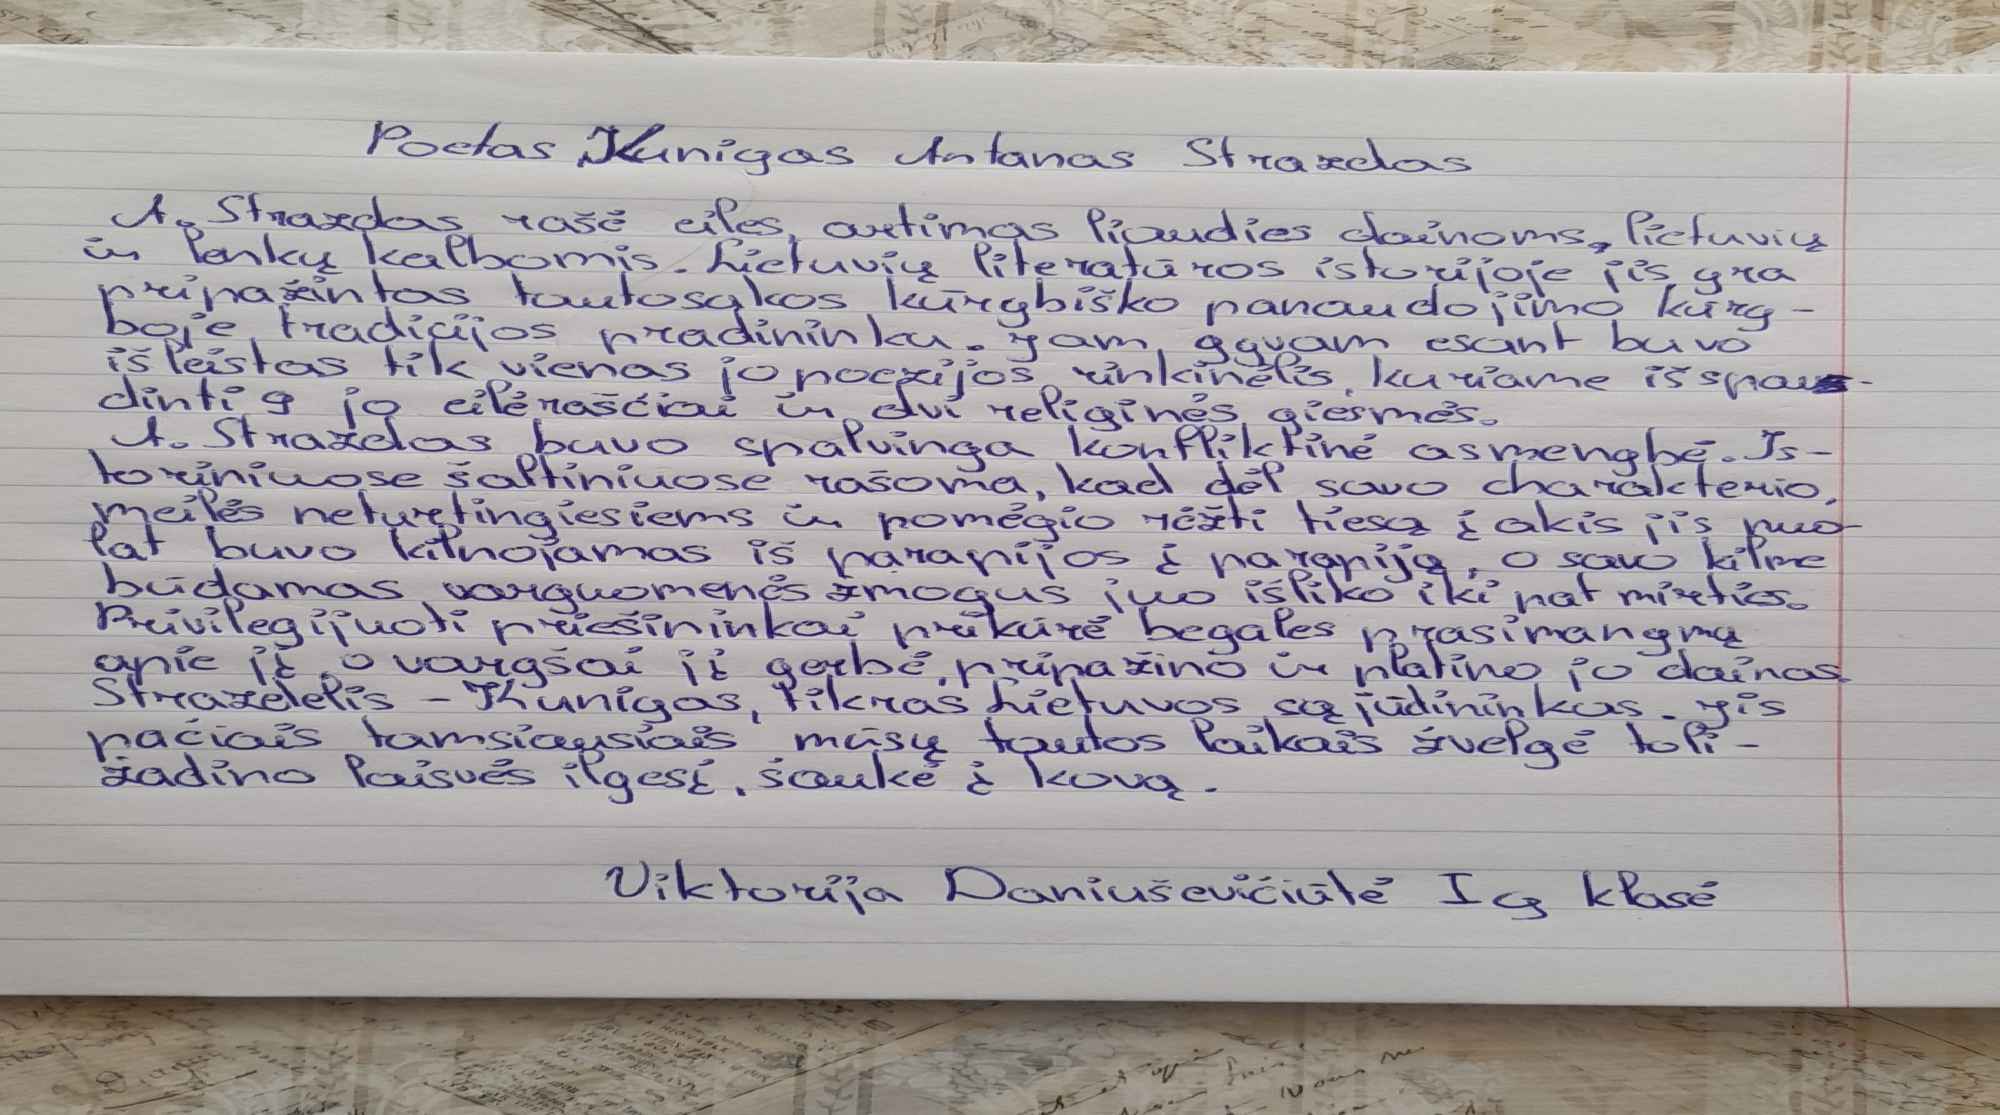 Poetas Kunigas Antanas Strazdas
A. Strazdas rašė eiles, artimas liaudies dainoms, lietuvių
ir lenkų kalbomis. Lietuvių literatūros istorijoje jis yra
pripažintas tautosakos kūrybiško panaudojimo kūry-
boje tradicijos pradininku. Jam gyvam esant buvo
išleistas tik vienas jo poezijos rinkinėlis, kuriame išspau-
dinti 9 jo eilėraščiai ir dvi religinės giesmės.
A. Strazdas buvo spalvinga konfliktinė asmenybė. Is-
toriniuose šaltiniuose rašoma, kad dėl savo charakterio,
meilės neturtingiesiems ir pomėgio rėžti tiesą į akis jis nuo-
lat buvo kilnojamas iš parapijos į parapiją, o savo kilme
būdamas varguomenės žmogus juo išliko iki pat mirties.
Privilegijuoti priešininkai prikūrė begales prasimanymų
apie jį, o vargšai jį gerbė, pripažino ir platino jo dainas.
Strazdelis - Kunigas, tikras Lietuvos sąjūdininkas. Jis
pačiais tamsiausiais mūsų tautos laikais žvelgė toli -
žadino laisvės ilgesį, šaukė į kovą.
Viktorija Daniuševičiūtė I g klasė